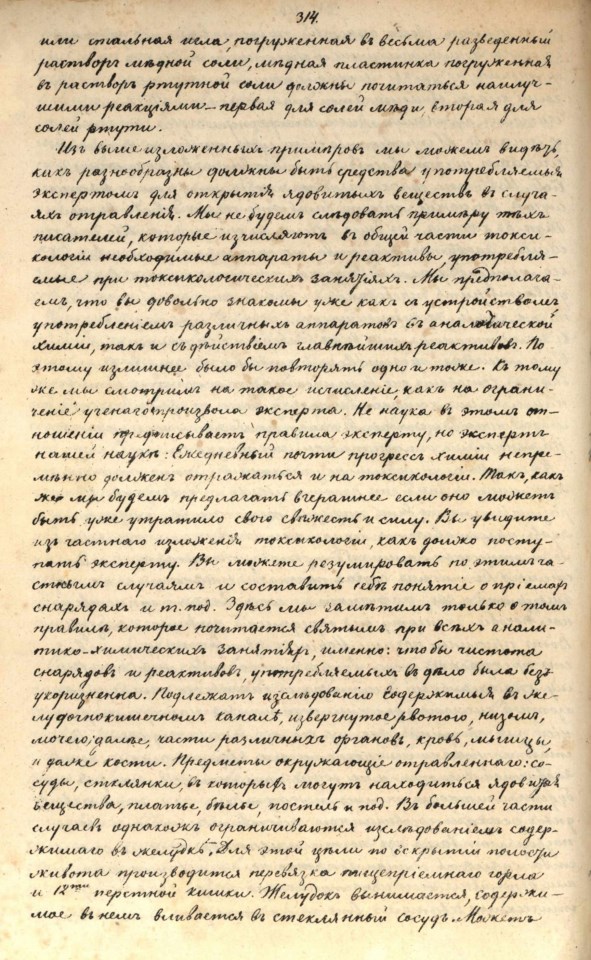 314.
или стальная игла, погруженная въ весьма разведенный
растворъ мѣдной соли, мѣдная пластинка погруженная
въ растворъ ртутной соли должны почитаться наилуч-
шими реакціями – первая для солей мѣди, вторая для
солей ртути.
Изъ выше изложенныхъ примѣровъ мы можемъ видѣть,
какъ разнообразны должны быть средства употребляемыя
экспертомъ для открытія ядовитыхъ веществъ въ случа-
яхъ отравленія. Мы не будемъ слѣдовать примѣру тѣхъ
писателей, которые изчисляютъ въ общей части токси-
кологіи необходимые аппараты и реактивы, употребля-
емые при токсикологическихъ занятіяхъ. Мы предполага-
емъ, что вы довольно знакомы уже какъ съ устройствомъ
употребленіемъ различныхъ аппаратовъ въ аналитической
химіи, такъ и съ дѣйствіемъ главнѣйшихъ реактивовъ. По
этому излишнее было бы повторять одно и тоже. Къ тому
же мы смотримъ на такое исчисленіе, какъ на ограни-
ченіе ученаго произвола эксперта. Не наука въ этомъ от-
ношеніи предписываетъ правила эксперту, но экспертъ
нашей наукѣ: Ежедневный почти прогрессъ химіи непре-
мѣнно долженъ отражаться и на токсикологіи. Такъ, какъ
же мы будемъ предлагать вчерашнее если оно можетъ
быть уже утратило свою свѣжесть и силу. Вы увидите
изъ частнаго изложенія токсикологіи, какъ должно посту-
пать эксперту. Вы можете резумировать по этимъ ча-
стнымъ случаямъ и составить себѣ понятіе о пріемахъ
снарядахъ и т. под. Здѣсь мы замѣтимъ только о томъ
правилѣ, которое почитается святымъ при всѣхъ анали-
тико-химическихъ занятіяхъ, именно: чтобы чистота
снарядовъ и реактивовъ, употребляемыхъ въ дѣло была без-
укоризненна. Подлежатъ изслѣдованію содержимыя въ же-
лудочнокишечномъ каналѣ, извергнутое рвотою, низомъ,
мочею; далѣе, части различныхъ органовъ, кровь, мышцы,
и далѣе кости. Предметы окружающіе отравленнаго: со-
суды, стклянки, въ которыхъ могутъ находиться ядовитыя
вещества, платье, бѣлье, постель и под. Въ большей части
случаевъ однакожъ ограничиваются изслѣдованіемъ содер-
жимаго въ желудкѣ, Для этой цѣли по вскрытіи полости
живота производится перевязка пищепріемнаго горла
и 12ти перстной кишки. Желудокъ вынимается, содержи-
мое въ немъ вливается въ стеклянный сосудъ. Можетъ